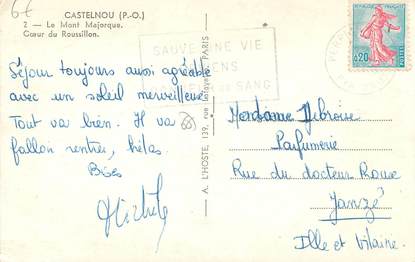 67
CASTELNOU (P.-O.)
2 - Le Mont Majorque.
Cœur du Roussillon.
SAUVER UNE VIE
DONNEZ
VOTRE SANG
PERPI
RÉPUBLIQUE FRANÇAISE
0,20
POSTES
Séjour toujours aussi agréable
avec un soleil merveilleux
Tout va bien. Il va
falloir rentrer, hélas.
Bises
Michele
A. L'HOSTE, 139, rue Lafayette, PARIS
Madame Debroise
Parfumerie
Rue du docteur Roux
Janzé
Ille et Vilaine.